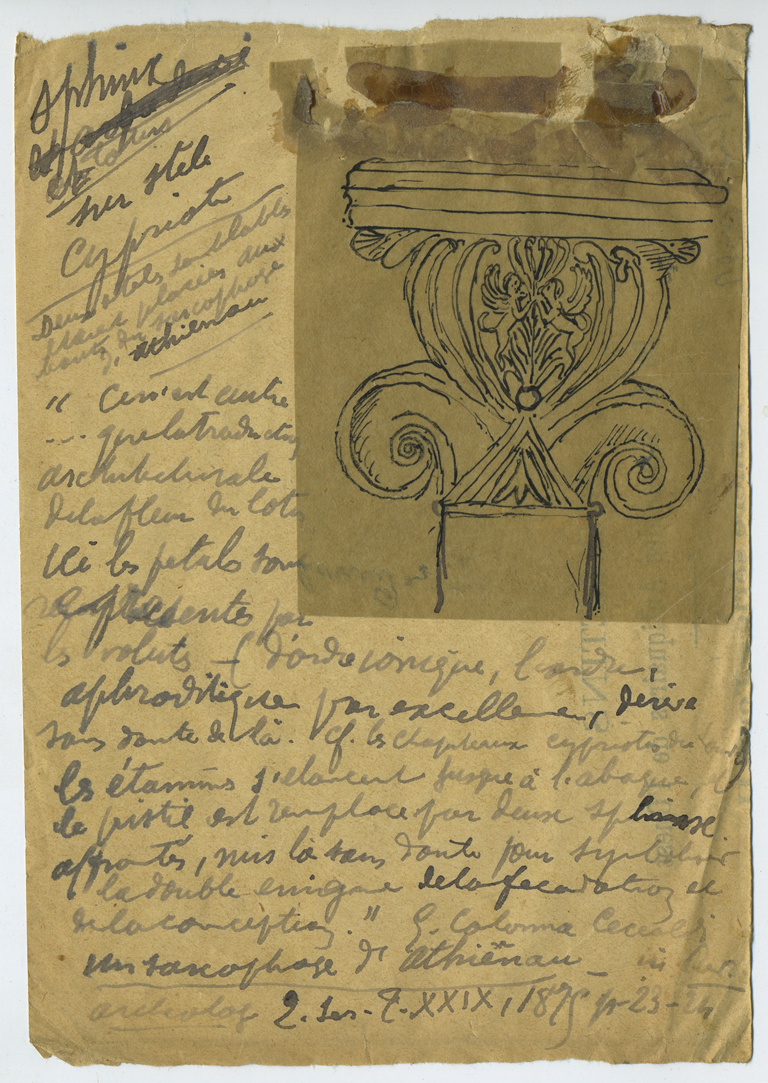 Sphinx
et lotus
sur stèle
Cypriote
Deux stèles semblables
étaient placées aux
bouts du sarcophage
d'Athienau
" Ceci n'est autre
... que la traduction
architecturale
de la fleur du lotus
Ici les pétales sont
représentés par
les volutes — (l'ordre ionique, l'ordre
aphroditique par excellence, dérive
sans doute de là. Cf. les chapiteaux cypriotes du
les étamines s'élancent jusque à l'abaque, et
le pistil est remplacé par deux sphinx
affrontés, mis là sans doute pour symboliser
la double énigme de la fécondation et
de la conception." G. Colonna Ceccaldi
un sarcophage d'Athiénau — in Rev.
archéolog 2. Ser. T. XXIX, 1875 p. 23-24